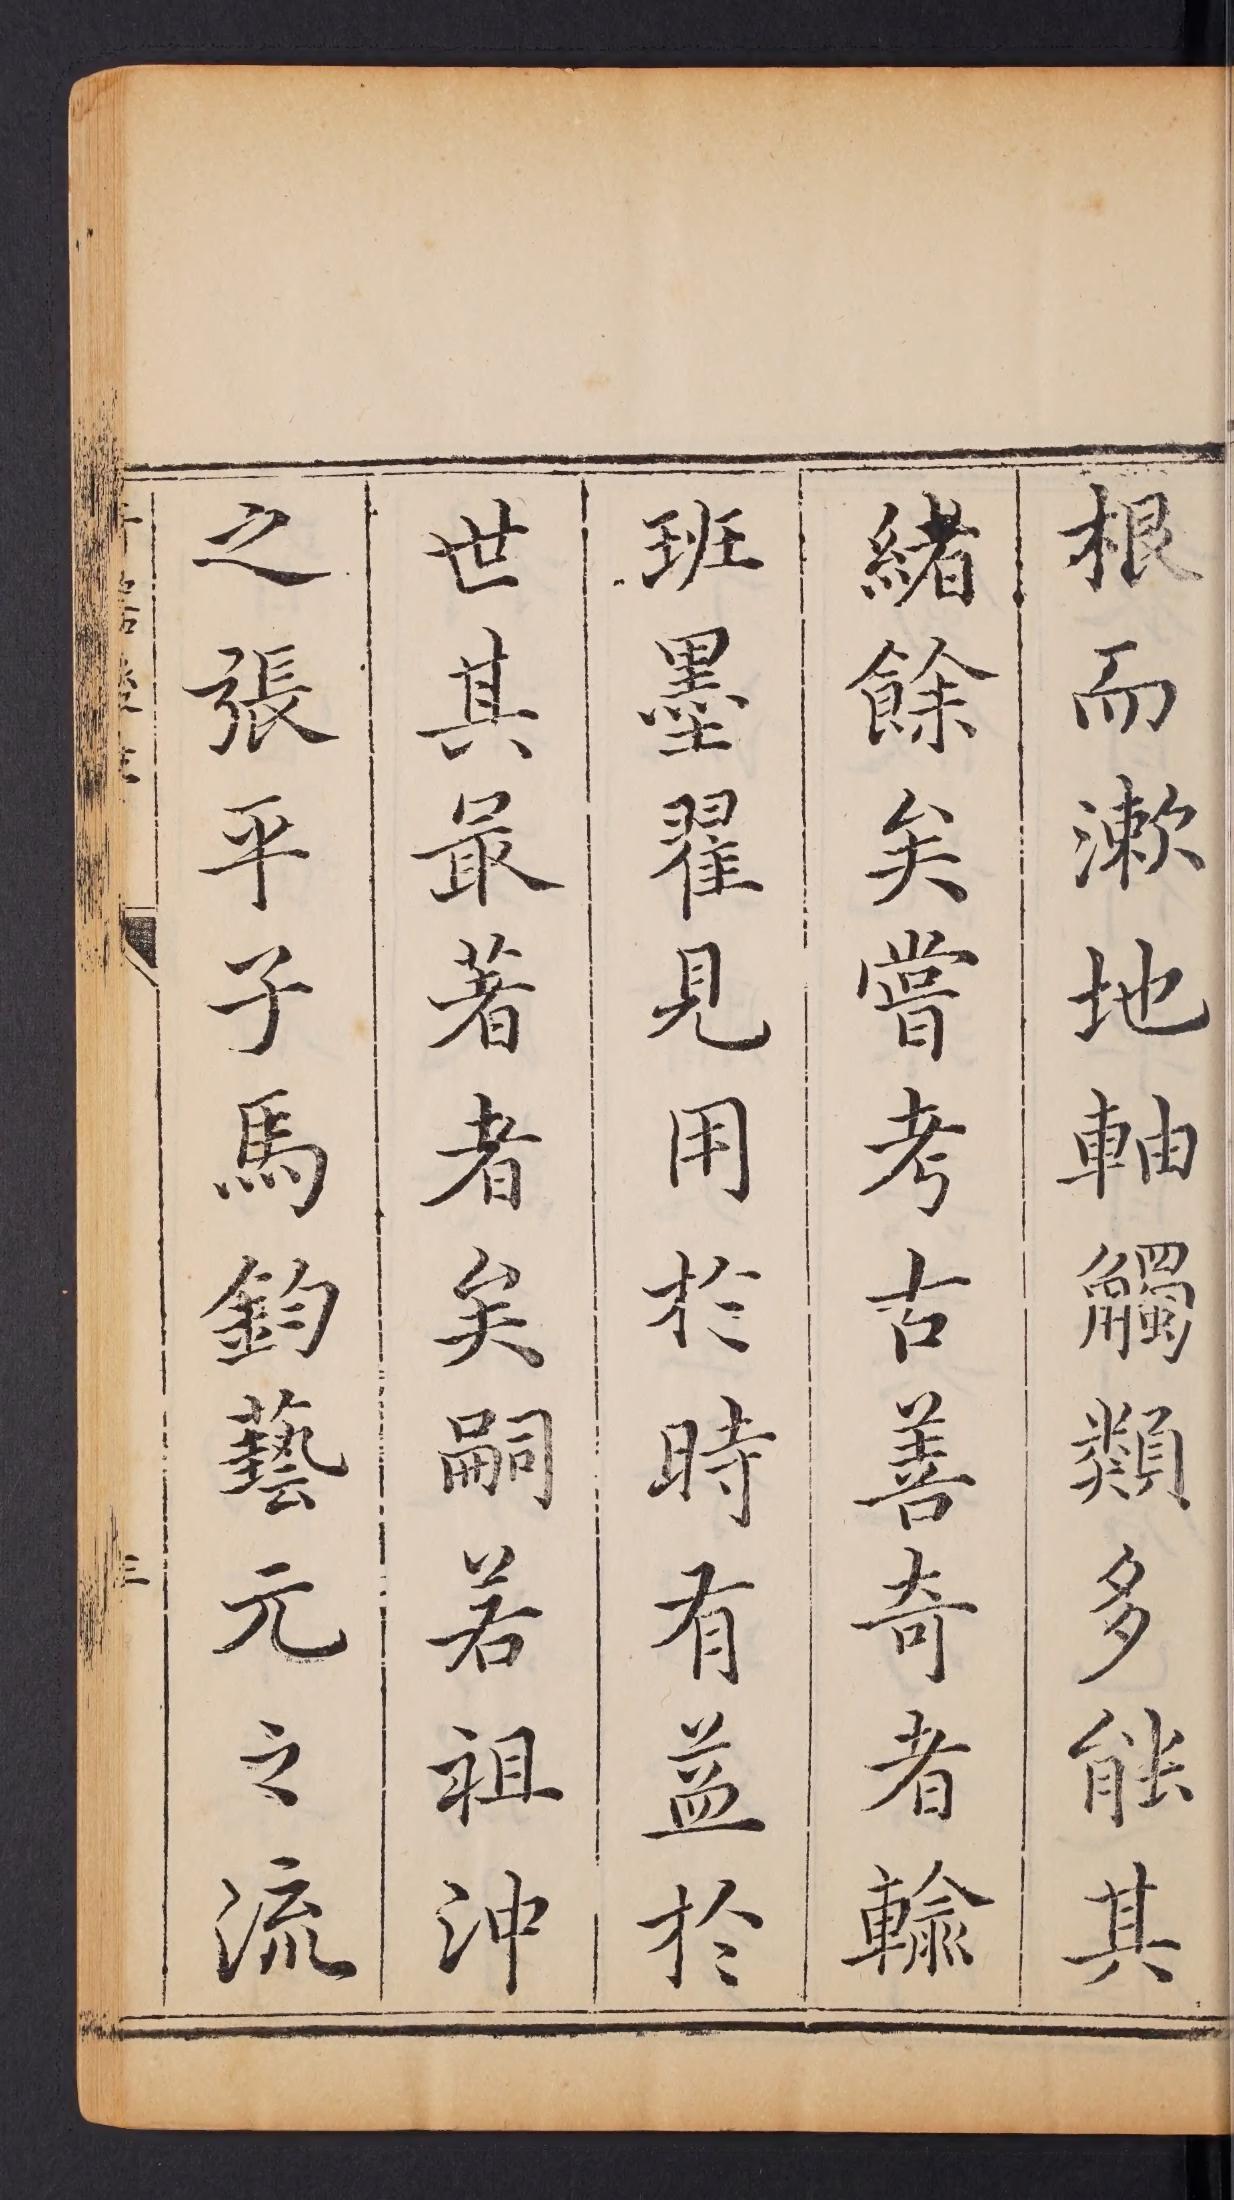 根而漱地軸觸類多能其
緒餘矣嘗考古善奇者輸
班墨翟見用於時有益於
世其最著者矣嗣若祖沖
之張平子馬鈞藝元之流
三